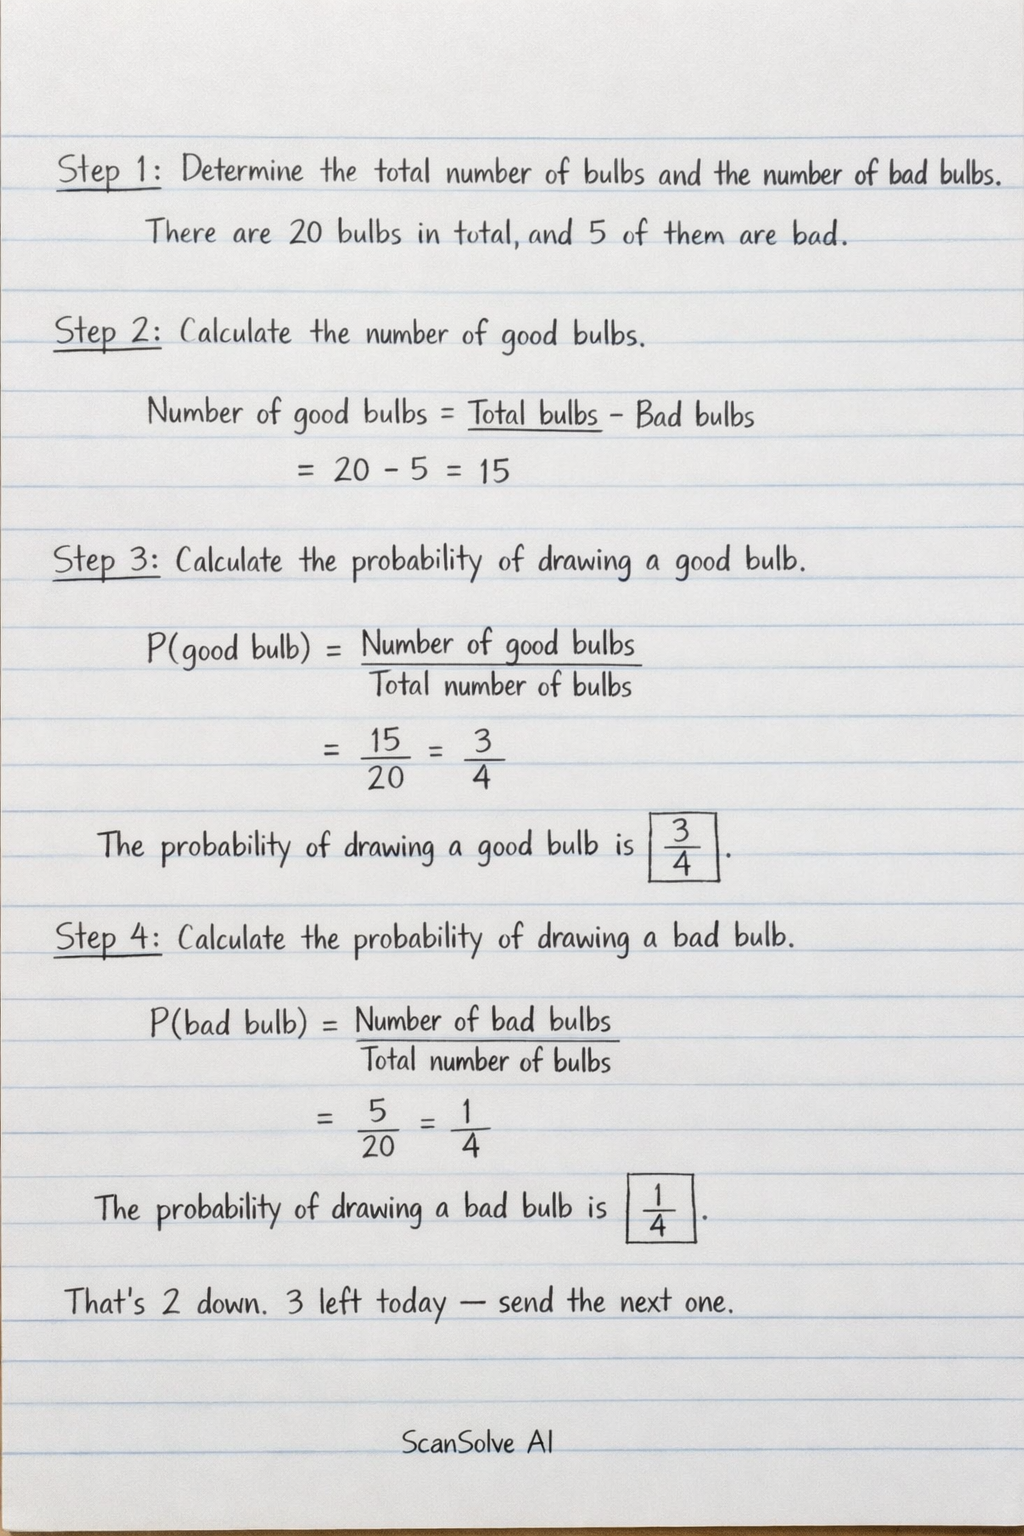 Step 1: Determine the total number of bulbs and the number of bad bulbs.
There are 20 bulbs in total, and 5 of them are bad.
Step 2: Calculate the number of good bulbs.
Number of good bulbs = Total bulbs - Bad bulbs
= 20 - 5 = 15
Step 3: Calculate the probability of drawing a good bulb.
P(good bulb) = Number of good bulbs
Total number of bulbs
= 15/20 = 3/4
The probability of drawing a good bulb is 3/4.
Step 4: Calculate the probability of drawing a bad bulb.
P(bad bulb) = Number of bad bulbs
Total number of bulbs
= 5/20 = 1/4
The probability of drawing a bad bulb is 1/4.
That's 2 down. 3 left today — send the next one.
ScanSolve AI